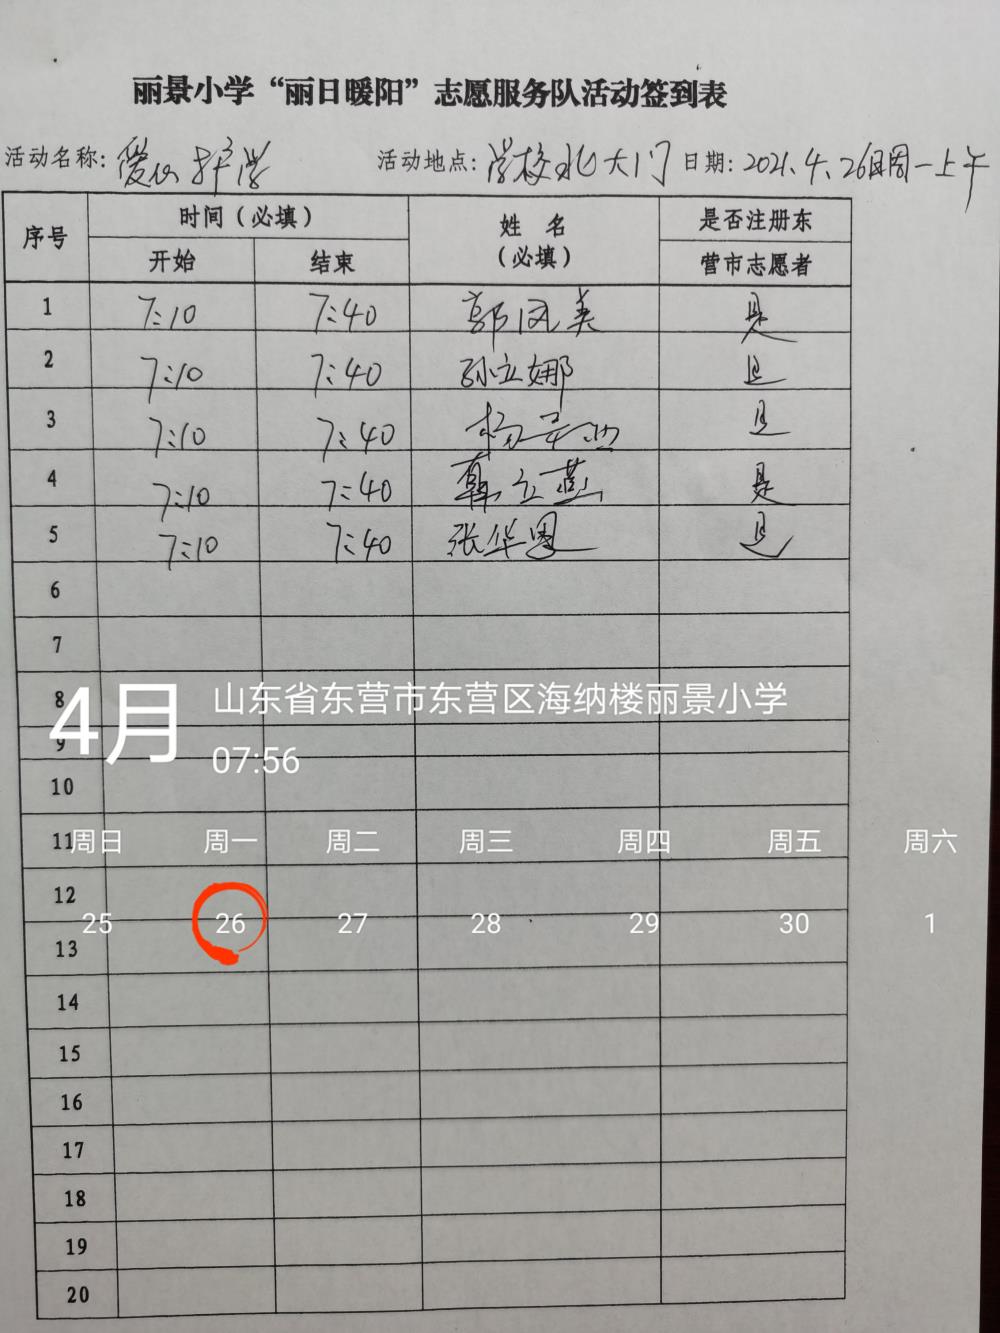 丽景小学“丽日暖阳”志愿服务队活动签到表
活动名称：爱心护学 活动地点：学校北大门 日期：2021.4.26日周一上午
序号 时间（必填） 姓名 是否注册东
开始 结束 （必填） 营市志愿者
1 7:10 7:40 郭凤美 是
2 7:10 7:40 孙立娜 是
3 7:10 7:40 杨 是
4 7:10 7:40 韩立燕 是
5 7:10 7:40 张华 是
6
7
8
4月 山东省东营市东营区海纳楼丽景小学
9
07:56
10
11
周日 周一 周二 周三 周四 周五 周六
12
25 26 27 28 29 30 1
13
14
15
16
17
18
19
20